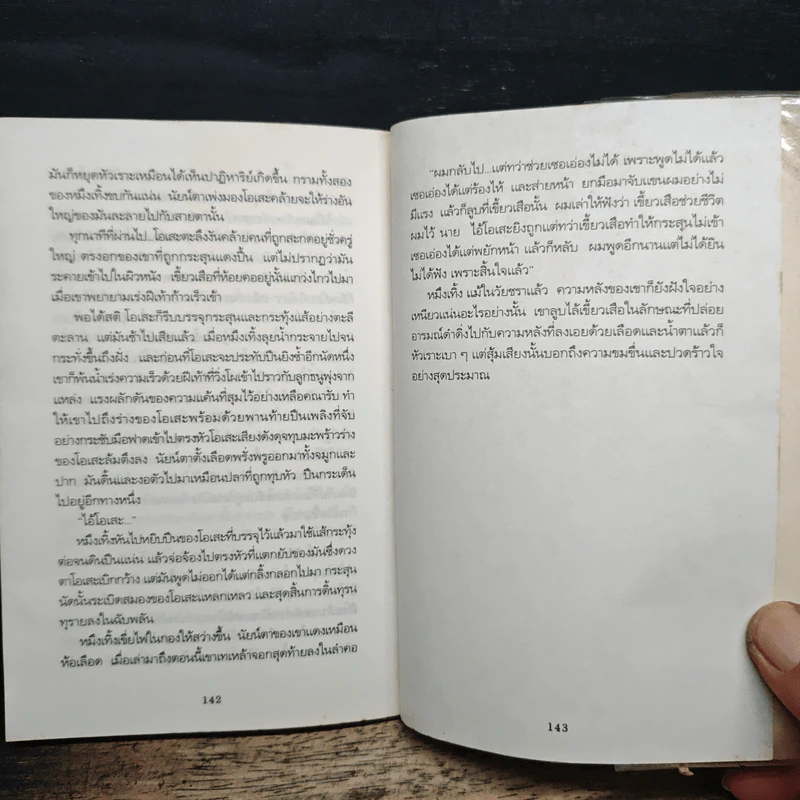 มันก็หยุดหัวเราะเหมือนได้เห็นปาฏิหาริย์เกิดขึ้น กรามทั้งสอง
ของหมึงเทิ้งขบกันแน่น นัยน์ตาเพ่งมองโอเสะคล้ายจะให้ร่างอัน
ใหญ่ของมันละลายไปกับสายตานั้น
ทุกนาทีที่ผ่านไป...โอเสะตะลึงงันคล้ายคนที่ถูกสะกดอยู่ชั่วครู่
ใหญ่ ตรงอกของเขาที่ถูกกระสุนแดงปื้น แต่ไม่ปรากฏว่ามัน
ระคายเข้าไปในผิวหนัง เขี้ยวเสือที่ห้อยคออยู่นั้นแกว่งไกวไปมา
เมื่อเขาพยายามเร่งฝีเท้าก้าวเร็วเข้า
พอได้สติ โอเสะก็รีบบรรจุกระสุนและกระทุ้งแส้อย่างตะลี
ตะลาน แต่มันช้าไปเสียแล้ว เมื่อหมึงเทิ้งลุยน้ำกระจายไปจน
กระทั่งขึ้นถึงฝั่ง และก่อนที่โอเสะจะประทับปืนยิงซ้ำอีกนัดหนึ่ง
เขาก็พ้นน้ำเร่งความเร็วด้วยฝีเท้าที่วิ่งโผเข้าไปราวกับลูกธนูพุ่งจาก
แหล่ง แรงผลักดันของความแค้นที่สุมไว้อย่างเหลือคณารับ ทำ
ให้เขาไปถึงร่างของโอเสะพร้อมด้วยพานท้ายปืนเพลิงที่จับ
อย่างกระชับมือฟาดเข้าไปตรงหัวโอเสะเสียงดังดุจทุบมะพร้าวร่าง
ของโอเสะล้มตึงลง นัยน์ตาตั้งเลือดพรั่งพรูออกมาทั้งจมูกและ
ปาก มันดิ้นและงอตัวไปมาเหมือนปลาที่ถูกทุบหัว ปืนกระเด็น
ไปอยู่อีกทางหนึ่ง
"ไอ้โอเสะ..."
หมึงเทิ้งหันไปหยิบปืนของโอเสะที่บรรจุไว้แล้วมาใช้แส้กระทุ้ง
ต่อจนดินปืนแน่น แล้วจ่อจ้องไปตรงหัวที่แตกยับของมันซึ่งดวง
ตาโอเสะเบิกกว้าง แต่มันพูดไม่ออกได้แต่กลิ้งกลอกไปมา กระสุน
นัดนั้นระเบิดสมองของโอเสะแหลกเหลว และสุดสิ้นการดิ้นทุรน
ทุรายลงในฉับพลัน
หมึงเทิ้งเขี่ยไฟในกองให้สว่างขึ้น นัยน์ตาของเขาแดงเหมือน
ห้อเลือด เมื่อเล่ามาถึงตอนนี้เขาเทเหล้าจอกสุดท้ายลงในลำคอ
142
"ผมกลับไป...แต่ทว่าช่วยเซอเอ่องไม่ได้ เพราะพูดไม่ได้แล้ว
เซอเอ่องได้แต่ร้องไห้ และส่ายหน้า ยกมือมาจับแขนผมอย่างไม่
มีแรง แล้วก็ลูบที่เขี้ยวเสือนั้น ผมเล่าให้ฟังว่า เขี้ยวเสือช่วยชีวิต
ผมไว้ นาย ไอ้โอเสะยิงถูกแต่ทว่าเขี้ยวเสือทำให้กระสุนไม่เข้า
เซอเอ่องได้แต่พยักหน้า แล้วก็หลับ ผมพูดอีกนานแต่ไม่ได้ยิน
ไม่ได้ฟัง เพราะสิ้นใจแล้ว"
หมึงเทิ้ง แม้ในวัยชราแล้ว ความหลังของเขาก็ยังฝังใจอย่าง
เหนียวแน่นอะไรอย่างนั้น เขาลูบไล้เขี้ยวเสือในลักษณะที่ปล่อย
อารมณ์ดำดิ่งไปกับความหลังที่ลงเอยด้วยเลือดและน้ำตาแล้วก็
หัวเราะเบา ๆ แต่สุ้มเสียงนั้นบอกถึงความขมขื่นและปวดร้าวใจ
อย่างสุดประมาณ
143